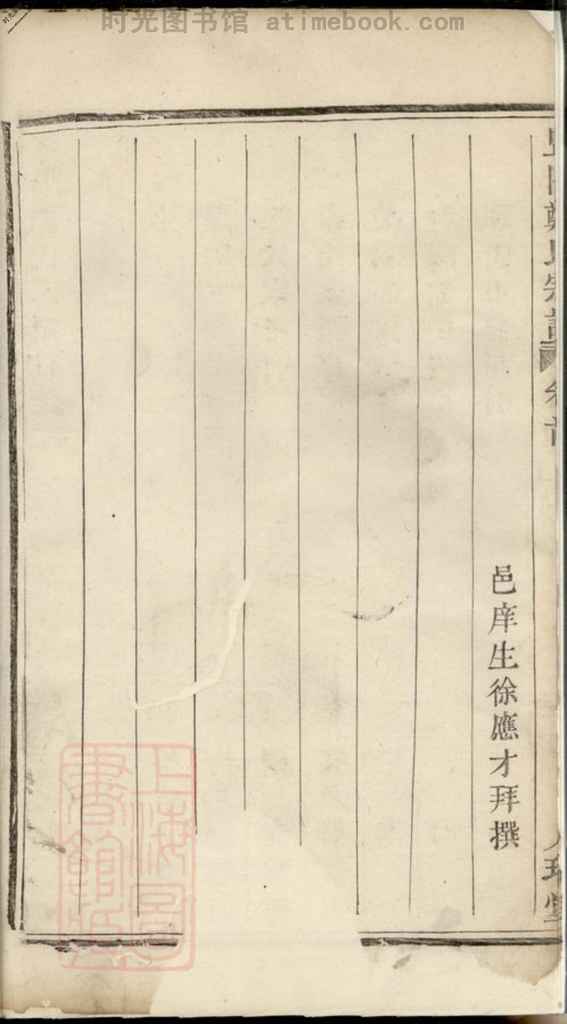 时光图书馆 atimebook.com
鄭氏宗譜 卷首
邑庠生徐應才拜撰
上海圖
書館藏